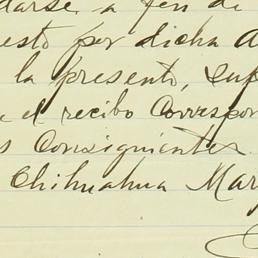 darse a fin de
esto por dicha A
la presente, sup
e el recibo Correspon
s Consiguientes
Chihuahua Mar